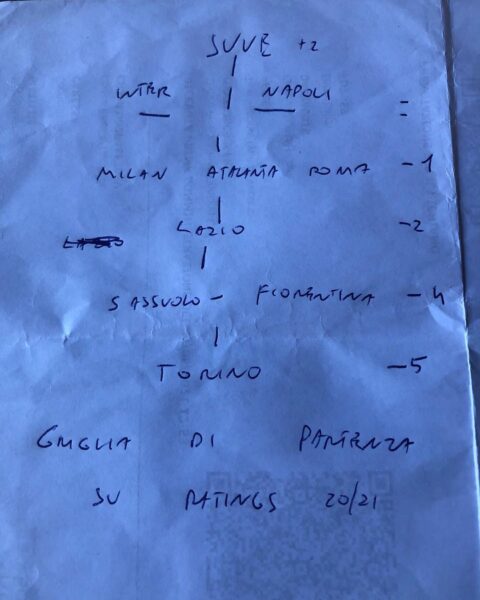 JUVE +2
INTER NAPOLI =
MILAN ATALANTA ROMA -1
LAZIO -2
SASSUOLO - FIORENTINA -4
TORINO -5
GRIGLIA DI PARTENZA
SU RATINGS 20/21